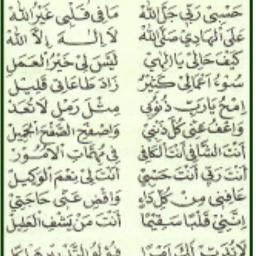 حَسْبِي رَبِّي جَلَّ اللهْ مَا فِي قَلْبِي غَيْرُ اللهْ
عَلَى الْهَادِي صَلَّى اللهْ لَا إِلٰهَ إِلَّا اللهْ
كَيْفَ حَالِي يَا إِلٰهِي لَيْسَ لِي خَيْرُ الْعَمَلِ
سُوءُ أَعْمَالِي كَثِيرٌ زَادُ طَاعَاتِي قَلِيلْ
اِمْحُ يَا رَبِّ ذُنُوبِي مِثْلَ رَمْلٍ لَا تُعَدْ
وَاعْفُ عَنِّي كُلَّ ذَنْبِي وَاصْفَحِ الصَّفْحَ الْجَمِيلْ
أَنْتَ الشَّافِي أَنْتَ الْكَافِي فِي مُهِمَّاتِ الْأُمُورْ
أَنْتَ رَبِّي أَنْتَ حَسْبِي أَنْتَ لِي نِعْمَ الْوَكِيلْ
عَافِنِي مِنْ كُلِّ دَاءٍ وَاقْضِ عَنِّي حَاجَتِي
إِنَّ لِي قَلْبًا سَقِيمًا أَنْتَ مَنْ يَشْفِي الْعَلِيلْ